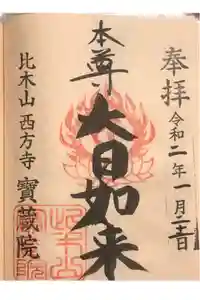 奉拝
令和二年一月
本尊
大日如来
比木山 西方寺 寶蔵院